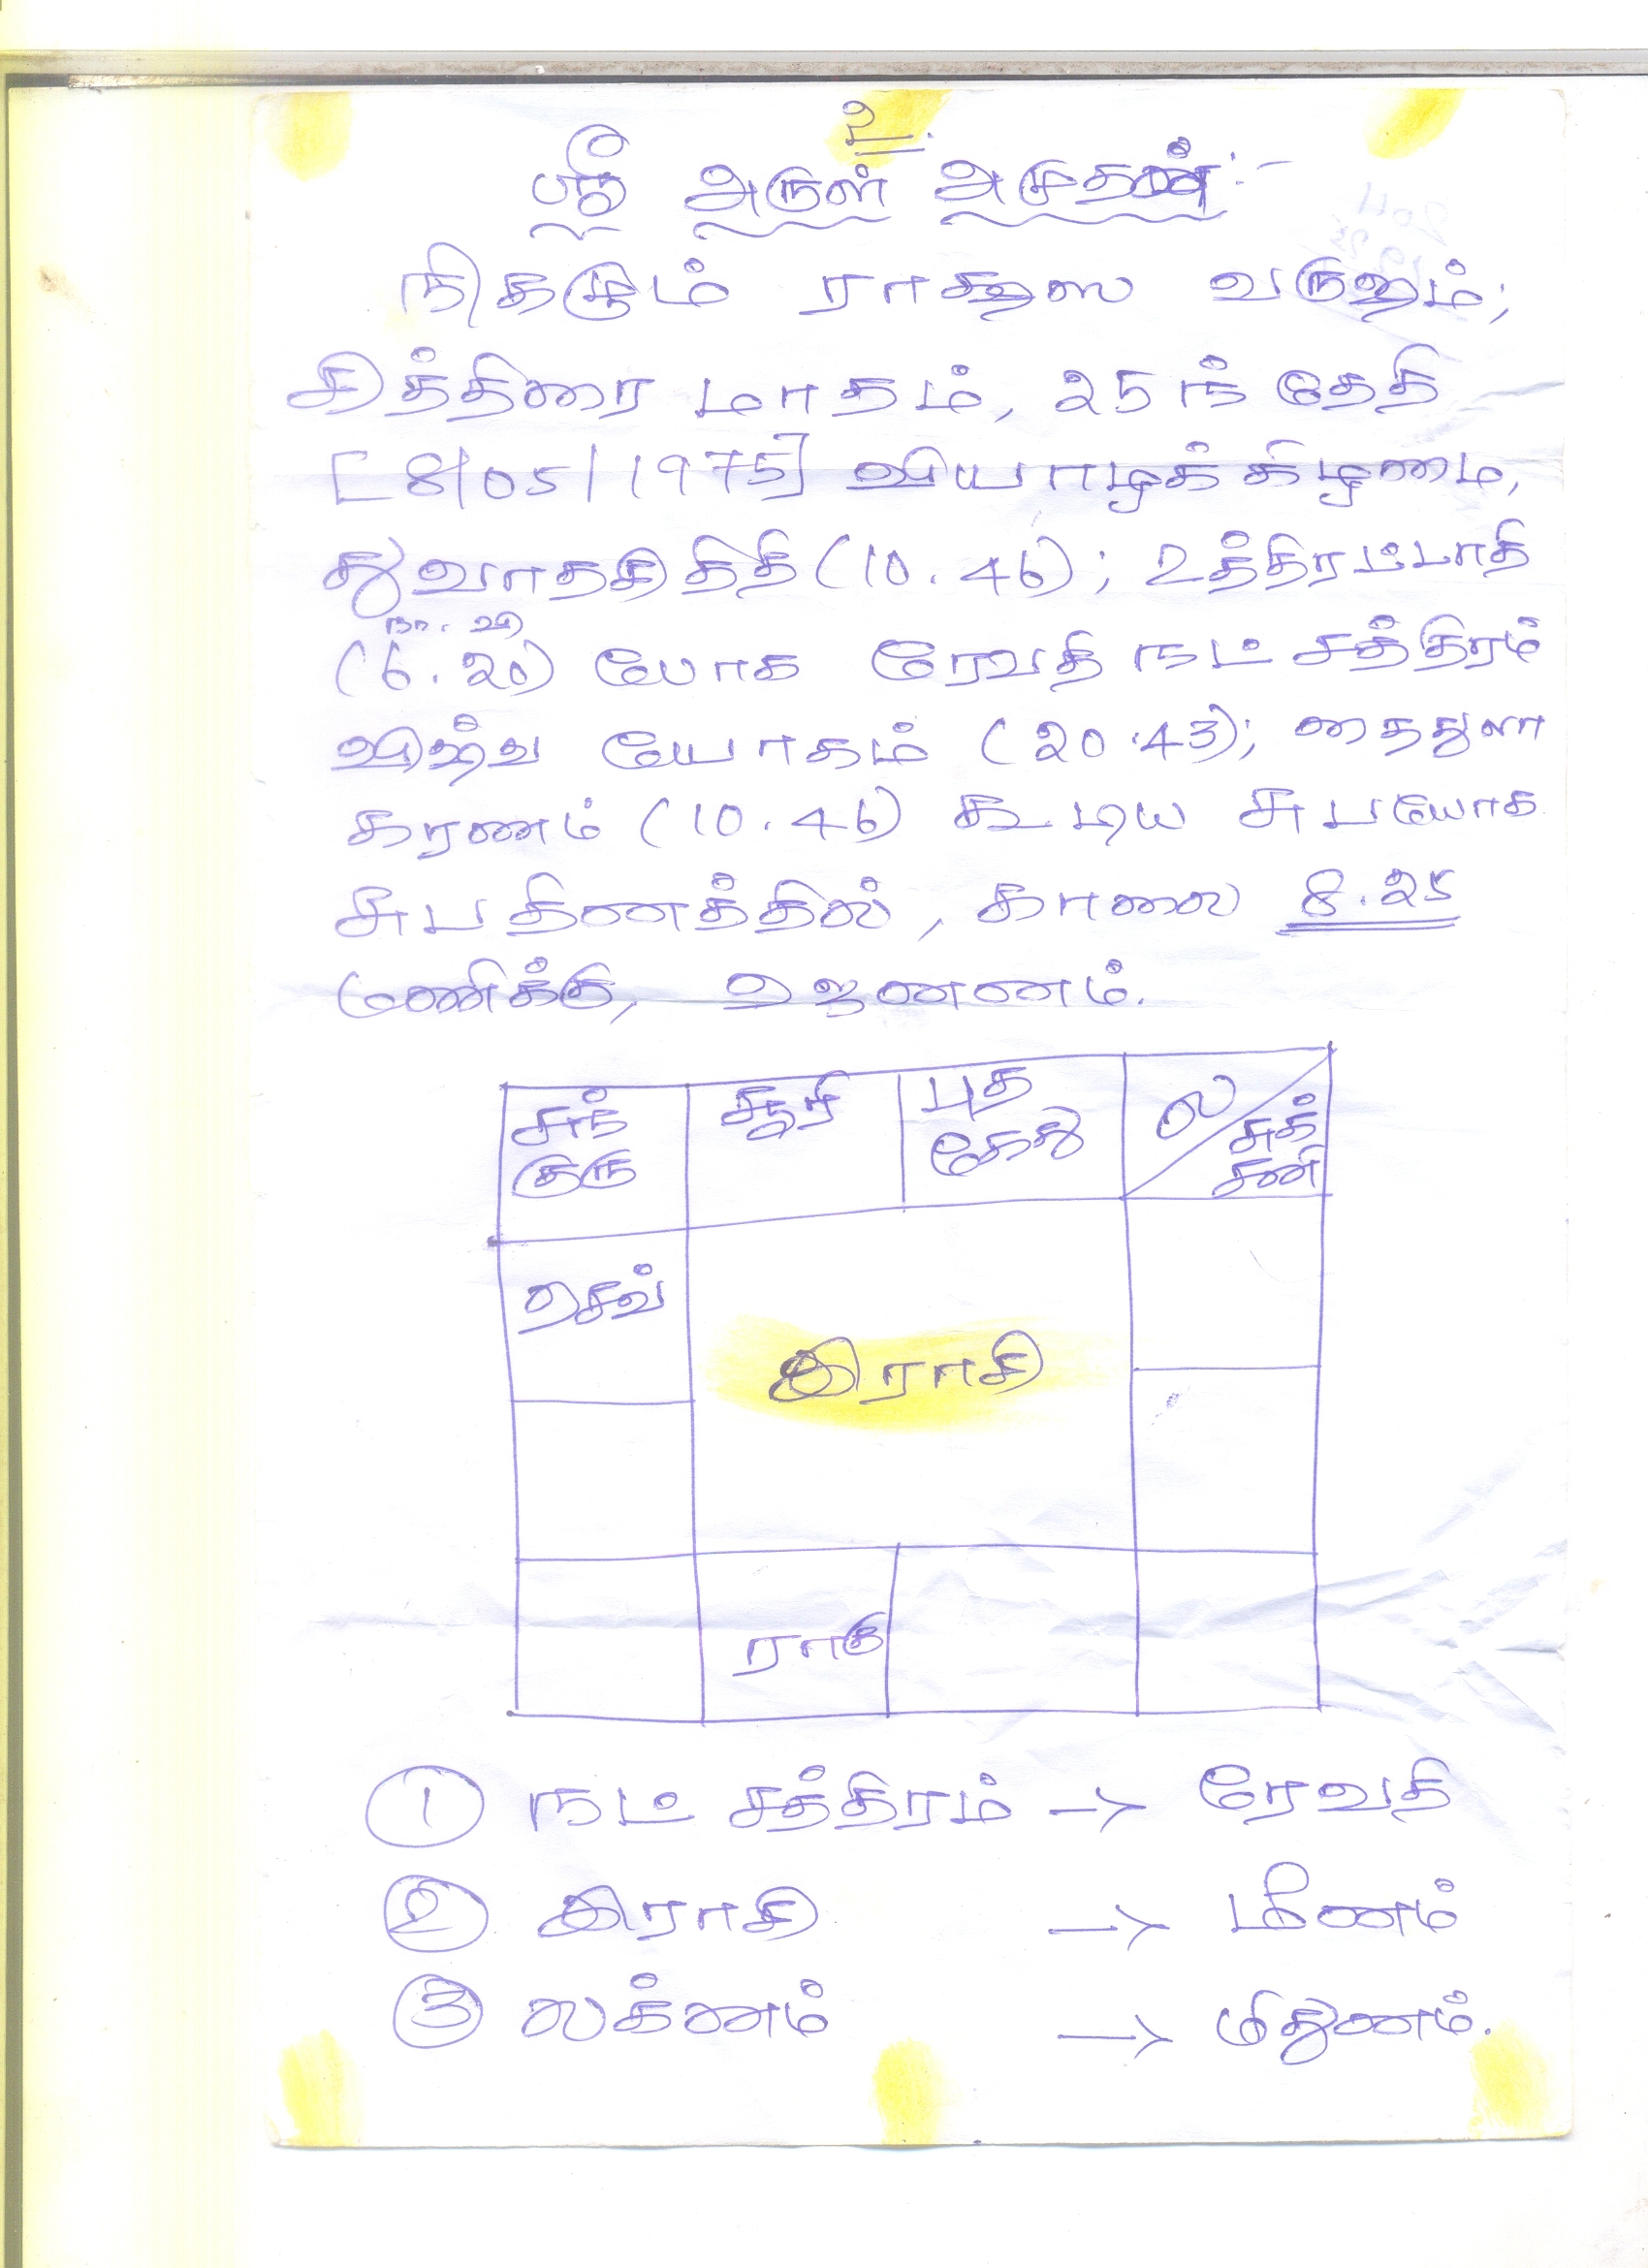 உ
ஸ்ரீ அருள் அமுதன்:-
நிகழும் ராக்ஷஸ வருஷம்;
சித்திரை மாதம், 25ந் தேதி
[8/05/1975] வியாழக்கிழமை,
துவாதசி திதி (10.46); உத்திரட்டாதி
நா. வி
(6.20) போக ரேவதி நட்சத்திரம்
விஷ்வ யோகம் (20.43); தைதுளா
கரணம் (10.46) கூடிய சுபயோக
சுப தினத்தில், காலை 8.25
மணிக்கு, ஜெனனம்.
சந் சூரி புத ல/ சுக்
குரு கேது சனி
செவ்
இராசி
ராகு
1 நட்சத்திரம் -> ரேவதி
2 இராசி -> மீனம்
3 லக்னம் -> மிதுனம்.